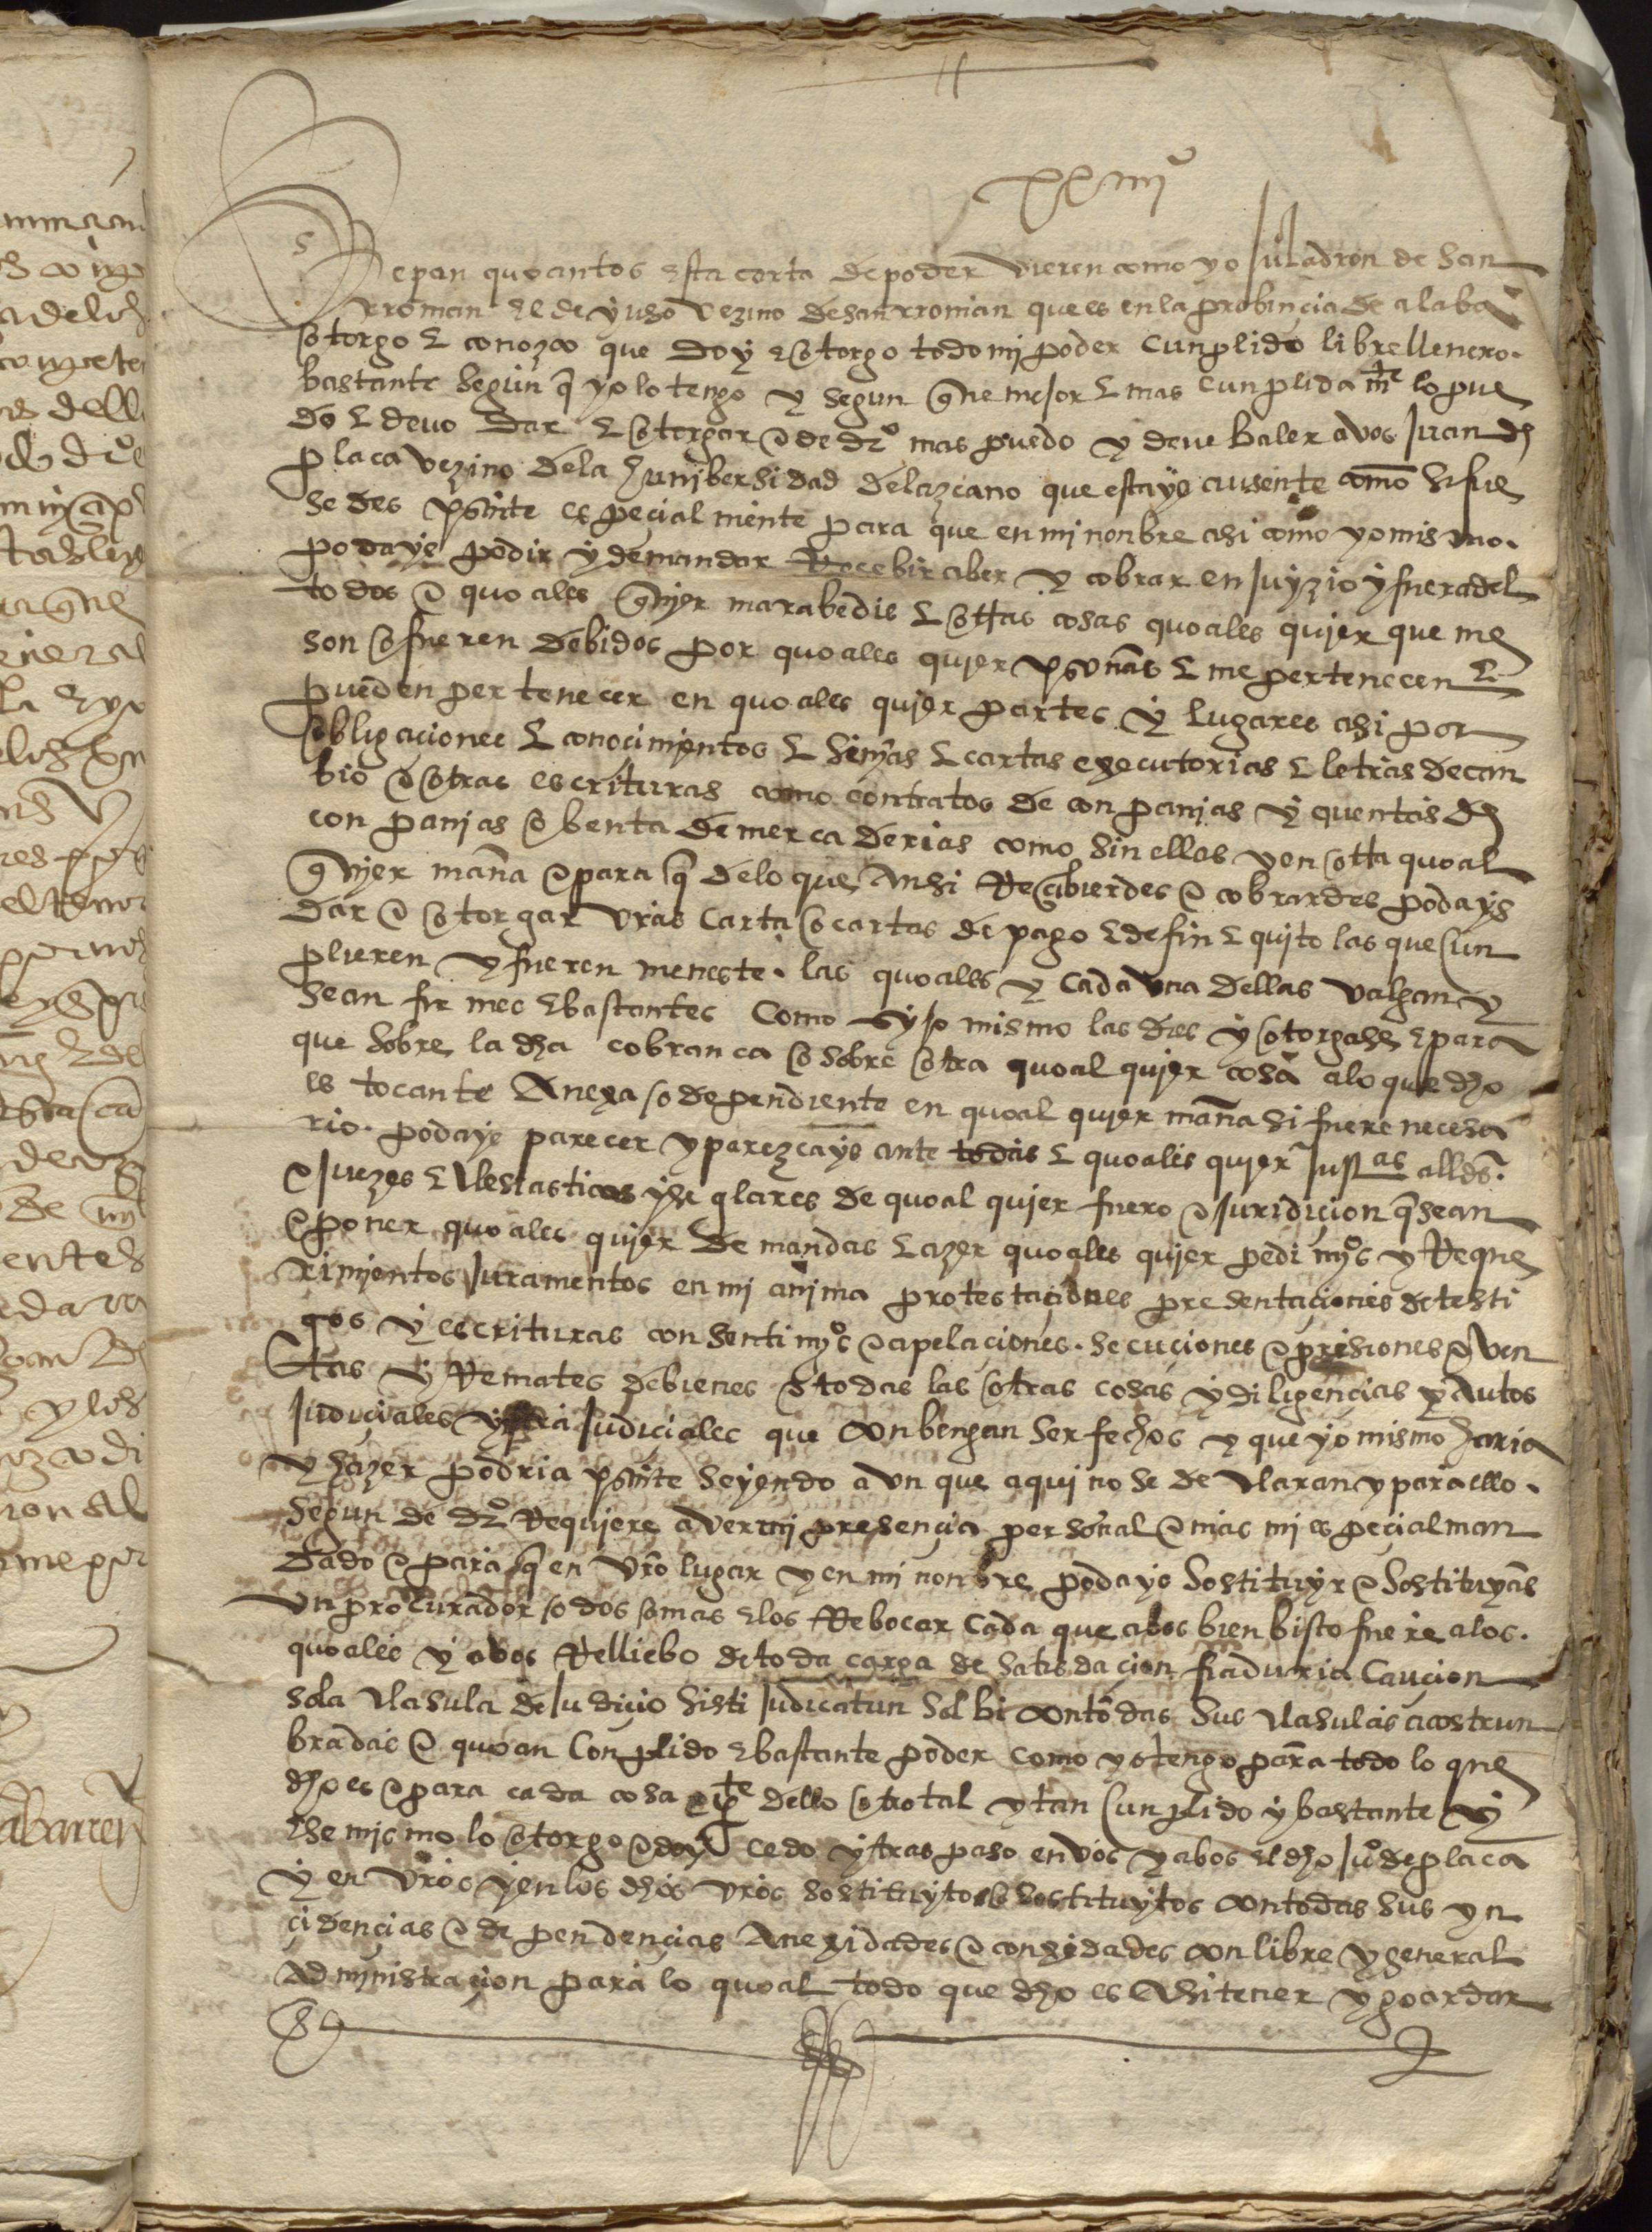 xxiiiiº
Sepan quoantos esta carta de poder vieren como yo Juº ladron de San
rroman el de yuso vezino de san rroman que es en la probinçia de alaba
otorgo e conozco que doy e otorgo todo mi poder cunplido libre llenero
bastante segun q yo lo tengo y segun que mejor e mas cunplida mẽ lo pue
do e devo dar e otorgar e de drº mas puedo y deve baler a vos Juan de
placa vezino de la hunibersidad de lazcano que estays ausente como si fue
sedes psente espeçial mente para que en mi nonbre asi como yo mismo
podays pedir y demandar Recebir aber y cobrar en Juyzio y fuera del
todos e quoales quier marabedis e otras cosas quoales quier que me
son o fueren debidos por quoales quier psonas e me pertenecen e
pueden pertenecer en quoales quier partes y lugares asi por
obligaciones e conocimientos e senᵗᵃs e cartas executorias e letras de can
bio e otras escrituras como contratos de conpanias y quentas de
conpanias o benta de mercaderias como sin ellas y en otra quoal
quier mana e para q de lo que Ansi Recibierdes e cobrardes podays
dar e otorgar vras carta o cartas de pago e de fin e quito las que cun
plieren y fueren meneste. las quoales y cada vna dellas valgan y
sean firmes e bastantes Como si yo mismo las dies y otorgase e para
que sobre la dha cobranca o sobre otra quoal quier cosa a lo que dho
es tocante Anexa o dependiente en quoal quier mana si fuere necesa
rio. podays parecer y parezcays ante todas e quoales quier Justas alldes
e Juezes eclesiasticos y seglares de quoal quier fuero e Juridiçion q sean
e poner quoales quier demandas e azer quoales quier pedimyºs y Reque
rimientos Juramentos en mi anima protestaçiones presentaçiones de testi
gos y escrituras consentimyºs e apelaçiones. secuçiones e prisiones e ven
tas y Remates de bienes e todas las otras cosas y diligençias y Autos
Judiçiales y estra Judiciales que conbengan ser fechos y que yo mismo haria
y hazer podria psente seyendo avn que aqui no se declaran y para ello
segun de drº Requiere aver mi presençia personal e mas mi espeçial man
dado e para q en vrº lugar y en mi nonbre podays sostituyr e sostituyas
vn procurador o dos o mas e los Rebocar cada que a bos bien bisto fuere a los
quoales y a bos Relliebo de toda carga de satisdaçion fiaduria Cauçion
so la clasula de Judiçio sisti Judicatun solbi con todas sus clasulas acostun
bradas e quoan Conplido e bastante poder como yo tengo para todo lo que
dho es e para cada cosa e pte dello otro tal y tan cunplido y bastante y
ese mismo lo otorgo e doy cedo y traspaso en vos y a bos el dho Juº de placa
y en vrºs y en los dhos vrºs sostituyto o sostituytos con todas sus yn
çidençias e dependençias Anexidades e conexidades con libre y general
administraçion para lo quoal todo que dho es Asi tener y goardar